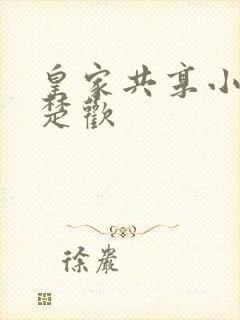 皇家共享小
楚歡
徐嚴